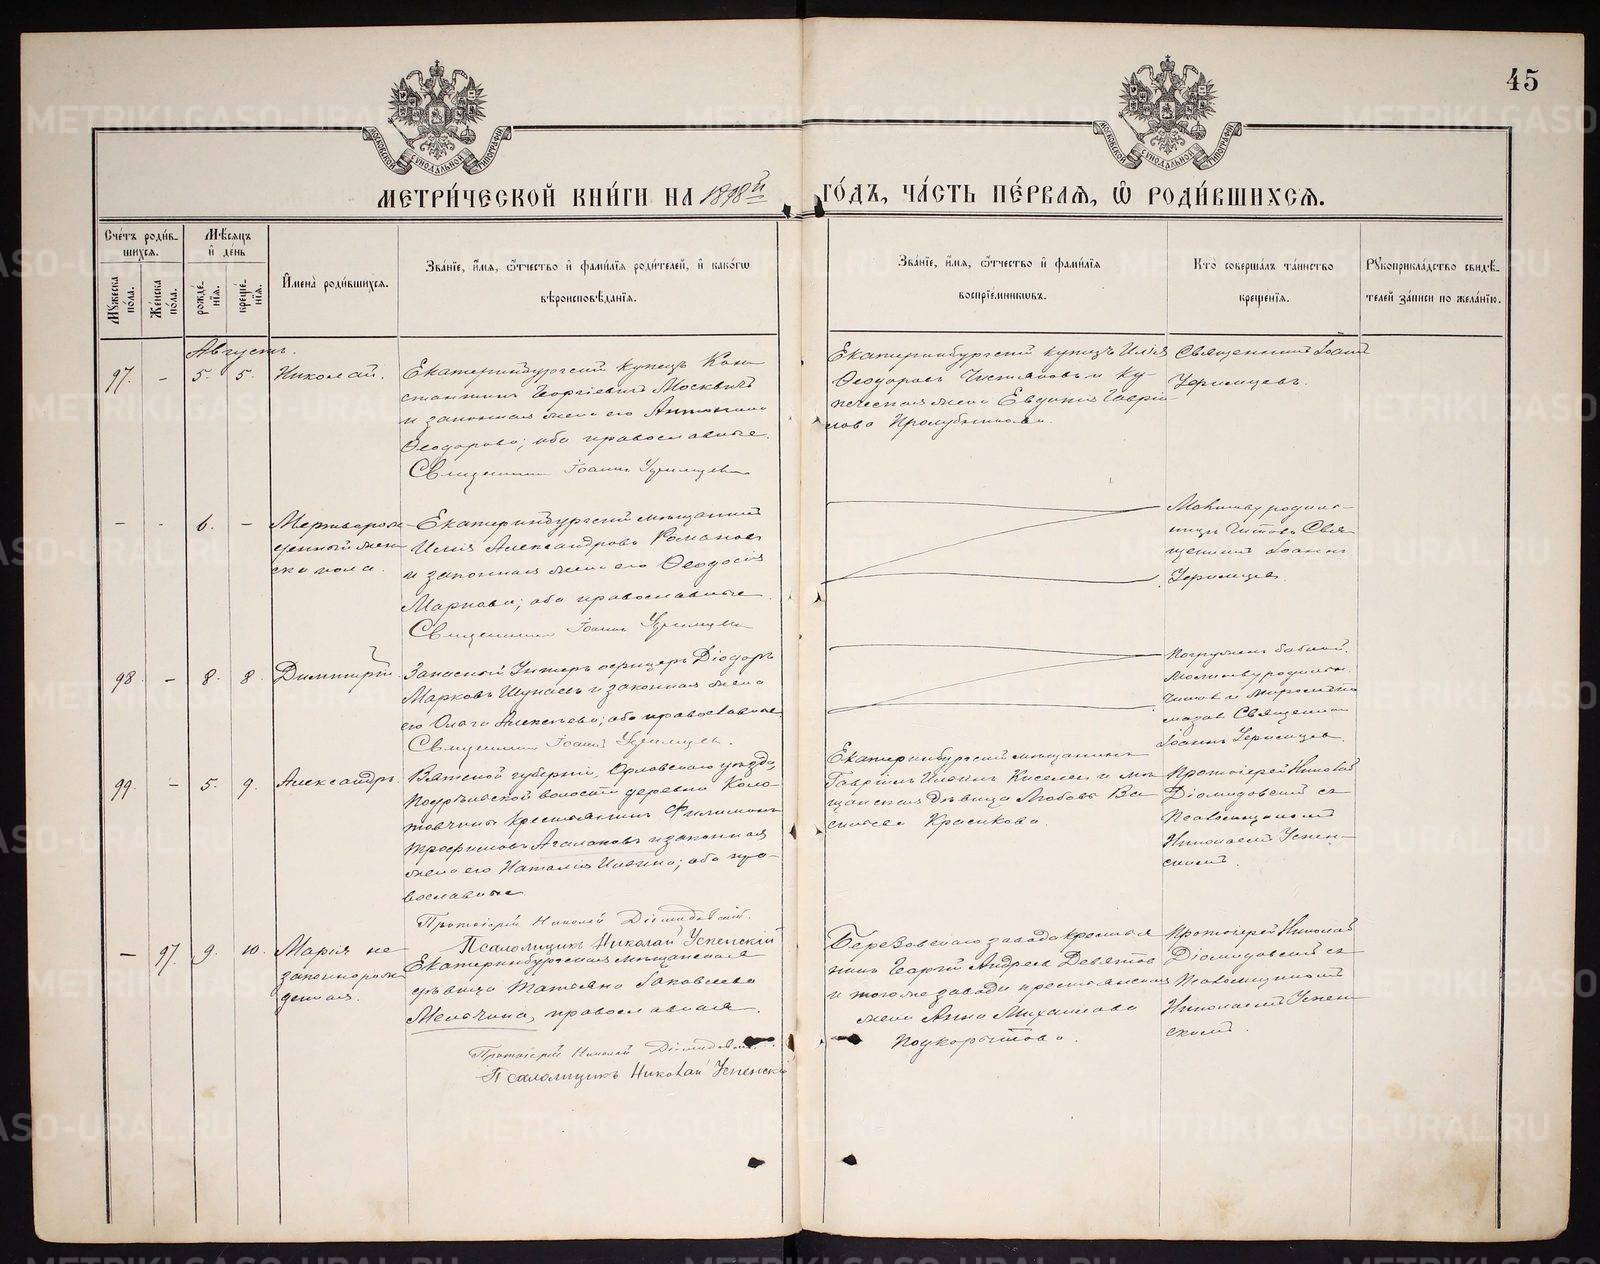 45
МОСКОВСКОЙ СѴНОДАЛЬНОЙ ТИПОГРАФІИ
МОСКОВСКОЙ СѴНОДАЛЬНОЙ ТИПОГРАФІИ
МЕТРИ́ЧЕСКОЙ КНИ́ГИ НА 1898й ГО́ДЪ, ЧА́СТЬ ПЕ́РВАѦ, Ѡ҆ РОДИ́ВШИХСѦ.
Сче́тъ роди́в-
шихсѧ.
Мꙋ́жеска по́ла.
Же́нска по́ла.
Мѣ́сѧцъ
и҆ де́нь
рожде́-нїѧ.
креще́-нїѧ.
И҆мена̀ роди́вшихсѧ.
Зва́нїе, и҆́мѧ, ѻ҆́тчество и҆ фами́лїѧ роди́телей, и҆ како́гѡ
вѣроисповѣ́данїѧ.
Зва́нїе, и҆́мѧ, ѻ҆́тчество и҆ фами́лїѧ
воспрїе́мникѡвъ.
Кто̀ соверша́лъ та́инство
креще́нїѧ.
Рꙋкоприкла́дство свидѣ́-
телей за́писи по жела́нїю.
Августъ.
97. - 5. 5. Николай.
Екатеринбургскій купецъ Кон-
стантинъ Георгіевичъ Москвинъ
и законная жена его Антонина
Ѳеодорова; оба православные.
Священникъ Іоаннъ Удинцевъ
Екатеринбургскій купецъ Илія
Ѳеодоровъ Чистяковъ и ку-
печеская жена Евдокія Гаврі-
лова Пролубникова.
Священникъ Іоаннъ
Удинцевъ.
- - 6. - Мертворож-
денный жен-
ска пола.
Екатеринбургскій мѣщанинъ
Илія Александровъ Романовъ
и законная жена его Ѳеодосія
Маркова; оба православные.
Священникъ Іоаннъ Удинцевъ
Молитву родиль-
ницѣ читалъ Свя-
щенникъ Іоаннъ
Удинцевъ.
98. - 8. 8. Димитрій.
Запасный Унтеръ офицеръ Діодоръ
Марковъ и законная жена
его Ольга Алексѣева; оба православные
Священникъ Іоаннъ Удинцевъ.
Погруженъ бабкой.
Молитву родильн.
читалъ и Миропома-
залъ Священникъ
Іоаннъ Удинцевъ.
99. - 5. 9. Александръ
Вятской губерніи, Орловскаго уѣзда,
волости деревни
крестьянинъ Филимонъ
Трофимовъ Агалаковъ и законная
жена его Наталія Ильина; оба пра-
вославные
Протоіерей Николай Діомидовскій.
Псаломщикъ Николай Успенскій
Екатеринбургскій мѣщанинъ
Гавріилъ Ильинъ Киселевъ и мѣ-
щанская дѣвица Любовь Ва-
сильева Красикова.
Протоіерей Николай
Діомидовскій съ
Псаломщикомъ
Николаемъ Успен-
скимъ.
- 97. 9. 10. Марія не-
законнорож-
денная.
Екатеринбургская мѣщанская
дѣвица Татьяна Іаковлева
Мельчина, православная.
Протоіерей Николай Діомидовскій.
Псаломщикъ Николай Успенскій
Березовскаго завода крестья-
нинъ Георгій Андреевъ Девятовъ
и того же завода крестьянская
жена Анна Михаилова
Подкорытова.
Протоіерей Николай
Діомидовскій съ
Псаломщикомъ
Николаемъ Успен-
скимъ.
METRIKI.GASO-URAL.RU